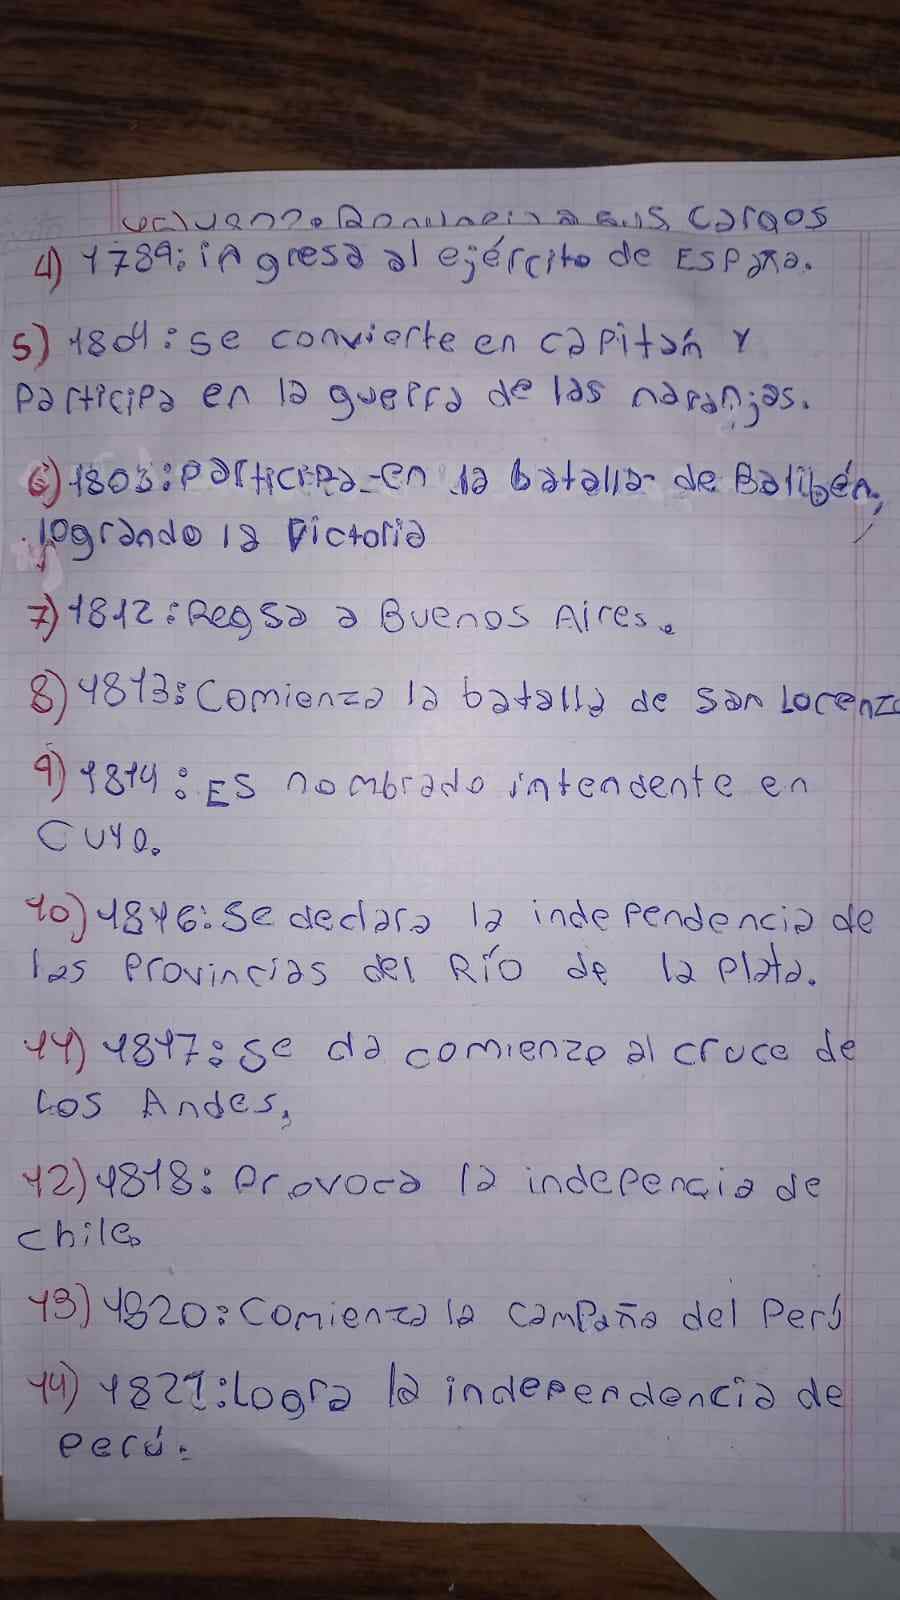 Renuncia a sus cargos
4) 1789: ingresa al ejército de España.
5) 1804: se convierte en capitán y
participa en la guerra de las naranjas.
6) 1803: participa en la batalla de Balibén,
logrando la victoria
7) 1812: Regsa a Buenos Aires.
8) 1813: Comienza la batalla de San Lorenzo
9) 1814: Es nombrado intendente en
Cuyo.
10) 1816: Se declara la independencia de
las provincias del Río de la Plata.
11) 1817: Se da comienzo al cruce de
Los Andes,
12) 1818: Provoca la indepencia de
Chile.
13) 1820: Comienza la campaña del Perú
14) 1821: Logra la independencia de
Perú.